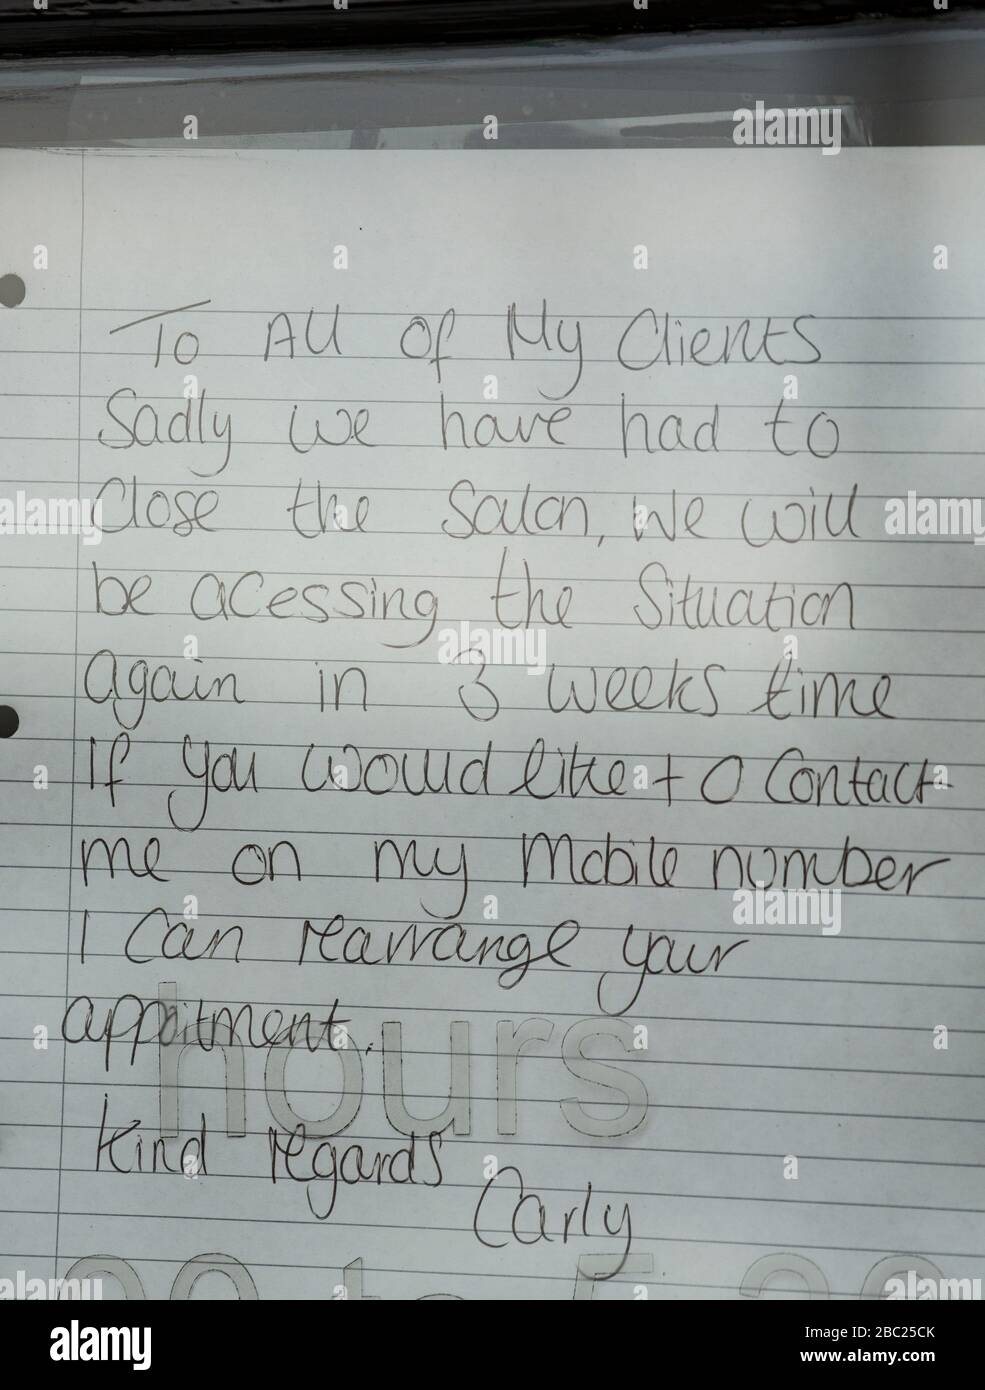 To All Of My Clients
Sadly we have had to
Close the Salon, We will
be acessing the Situation
again in 3 weeks time
If you would like to Contact
me on my Mobile number
I Can rearrange your
appoitment.
hours
Kind regards
Carly
alamy
Image ID: 2BC25CK
www.alamy.com